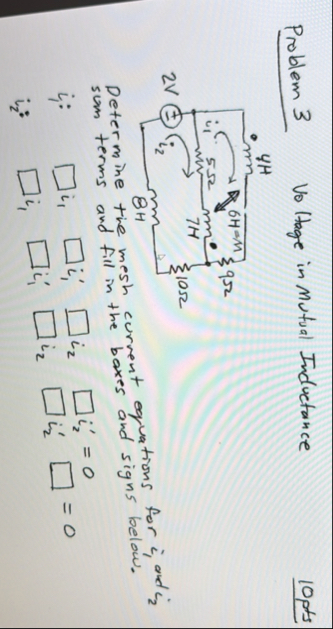 Problem 3 Voltage in Mutual Inductance 10pts
4H
6H=M
9Ω
i₁
5Ω
7H
2V
i₂
10Ω
8H
Determine the mesh current equations for i₁ and i₂
sum terms and fill in the boxes and signs below.
i₁: □ i₁ □ i₁' □ i₂ □ i₂' = 0
i₂: □ i₁ □ i₁' □ i₂ □ i₂' □ = 0